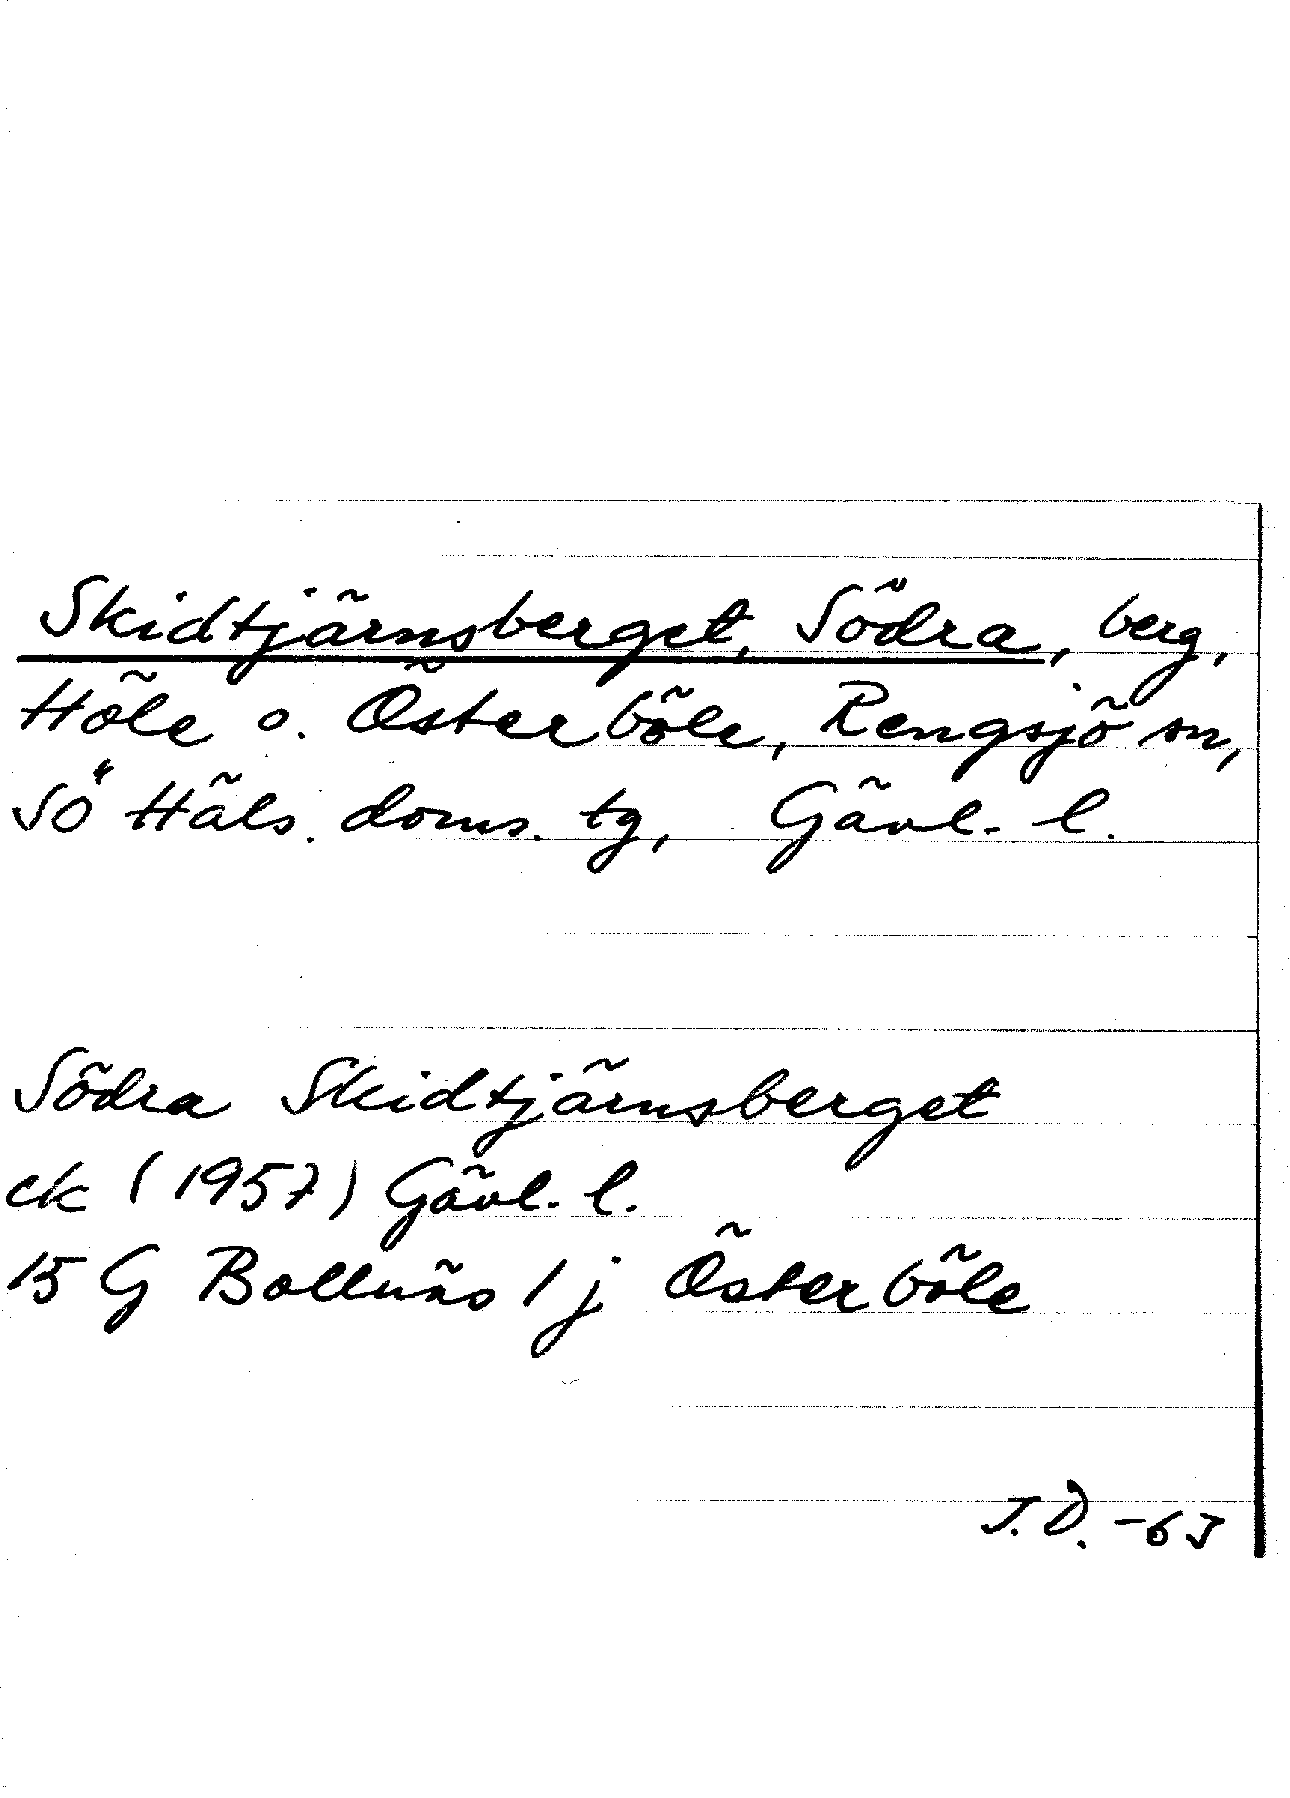 Skidtjärnsberget, Södra, berg,
Höle o. Österböle, Rengsjö sn,
Sö Häls. doms. tg, Gävl. l.
Södra Skidtjärnsberget
ek (1957) Gävl. l.
15 G Bollnäs 1 j Österböle
J.D. -63